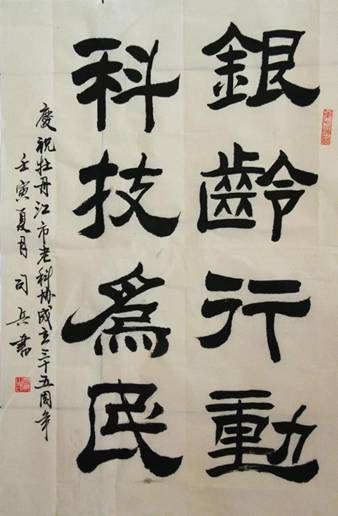 銀齡行動
科技爲民
慶祝牡丹江市老科协成立三十五周年
壬寅夏月司兵書